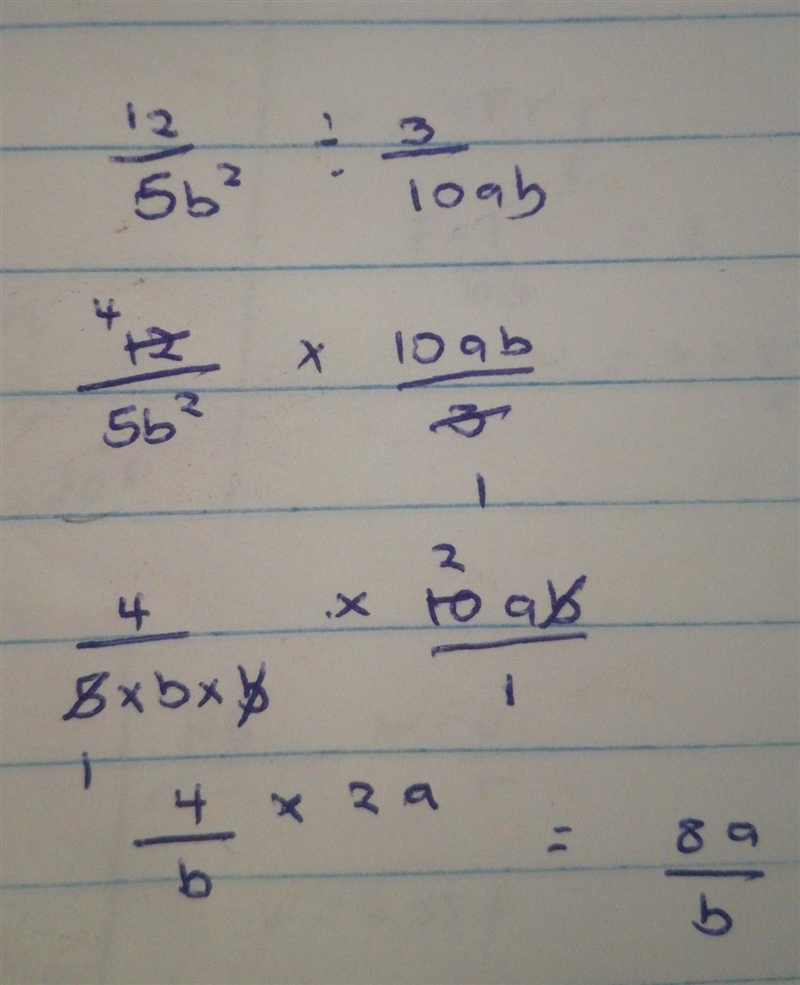 12/5b² ÷ 3/10ab
4 12/5b² × 10ab/3 1
4/5×b×b 1 × 2 10ab/1
4/b × 2a = 8a/b